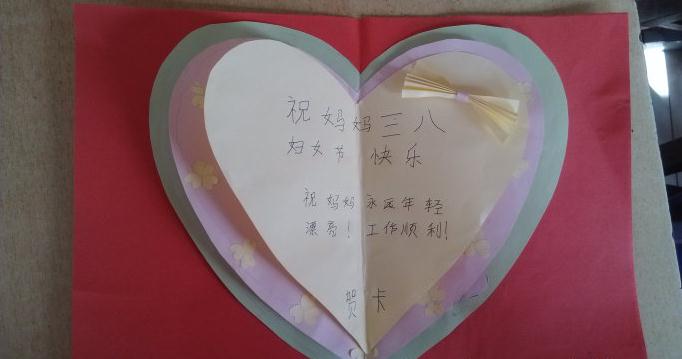 祝妈妈三八
妇女节 快乐
祝妈妈永远年轻
漂亮！工作顺利！
贺卡